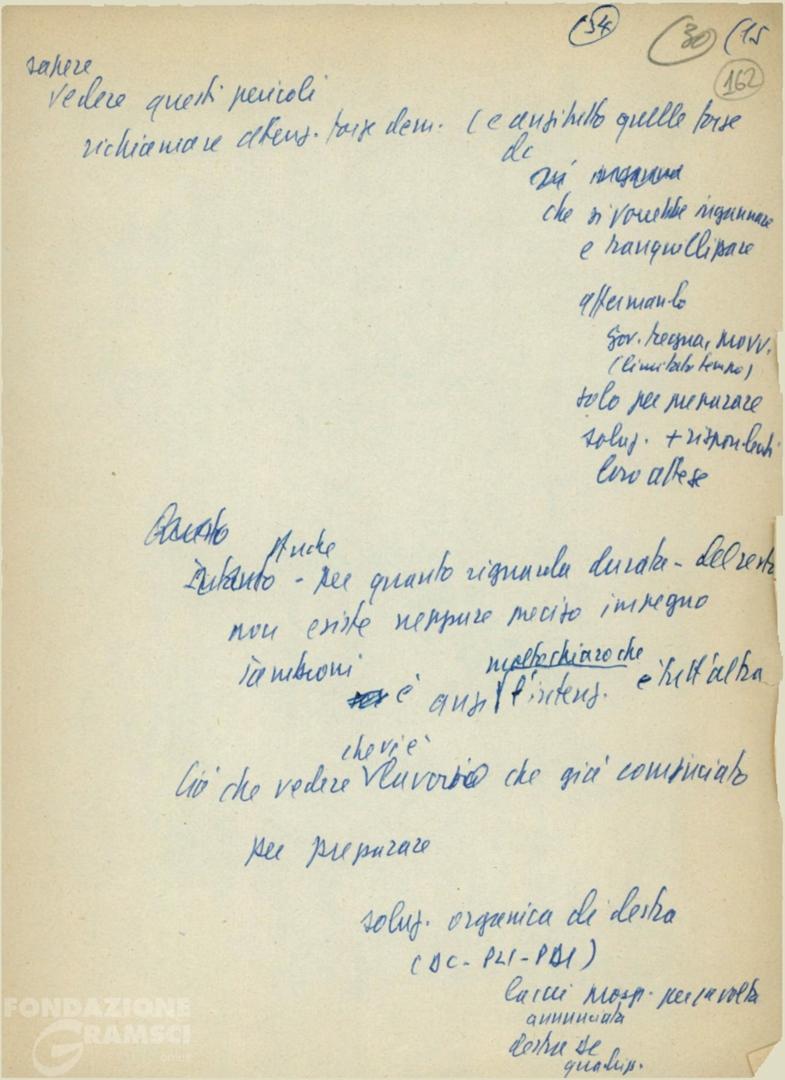 34 30 (15
162
sapere
vedere questi pericoli
richiamare attenz. forze dem. (e anzitutto quelle forze
dc
che si vorrebbe ingannare
e tranquillizzare
affermando
gov. tregua, provv.
(limitato tempo)
solo per preparare
soluz. + rispondenti
loro attese
Questo
Anche
Intanto - per quanto riguarda durata - del resto
non esiste neppure preciso impegno
Tambroni
molto chiaro che
è anzi l'intenz. è tutt'altra
che vi è
Già che vedere lavorio che già cominciato
per preparare
soluz. organica di destra
(DC - PLI - PDI)
la cui prosp. per la volta
annunciata
destra
FONDAZIONE
GRAMSCI
onlus